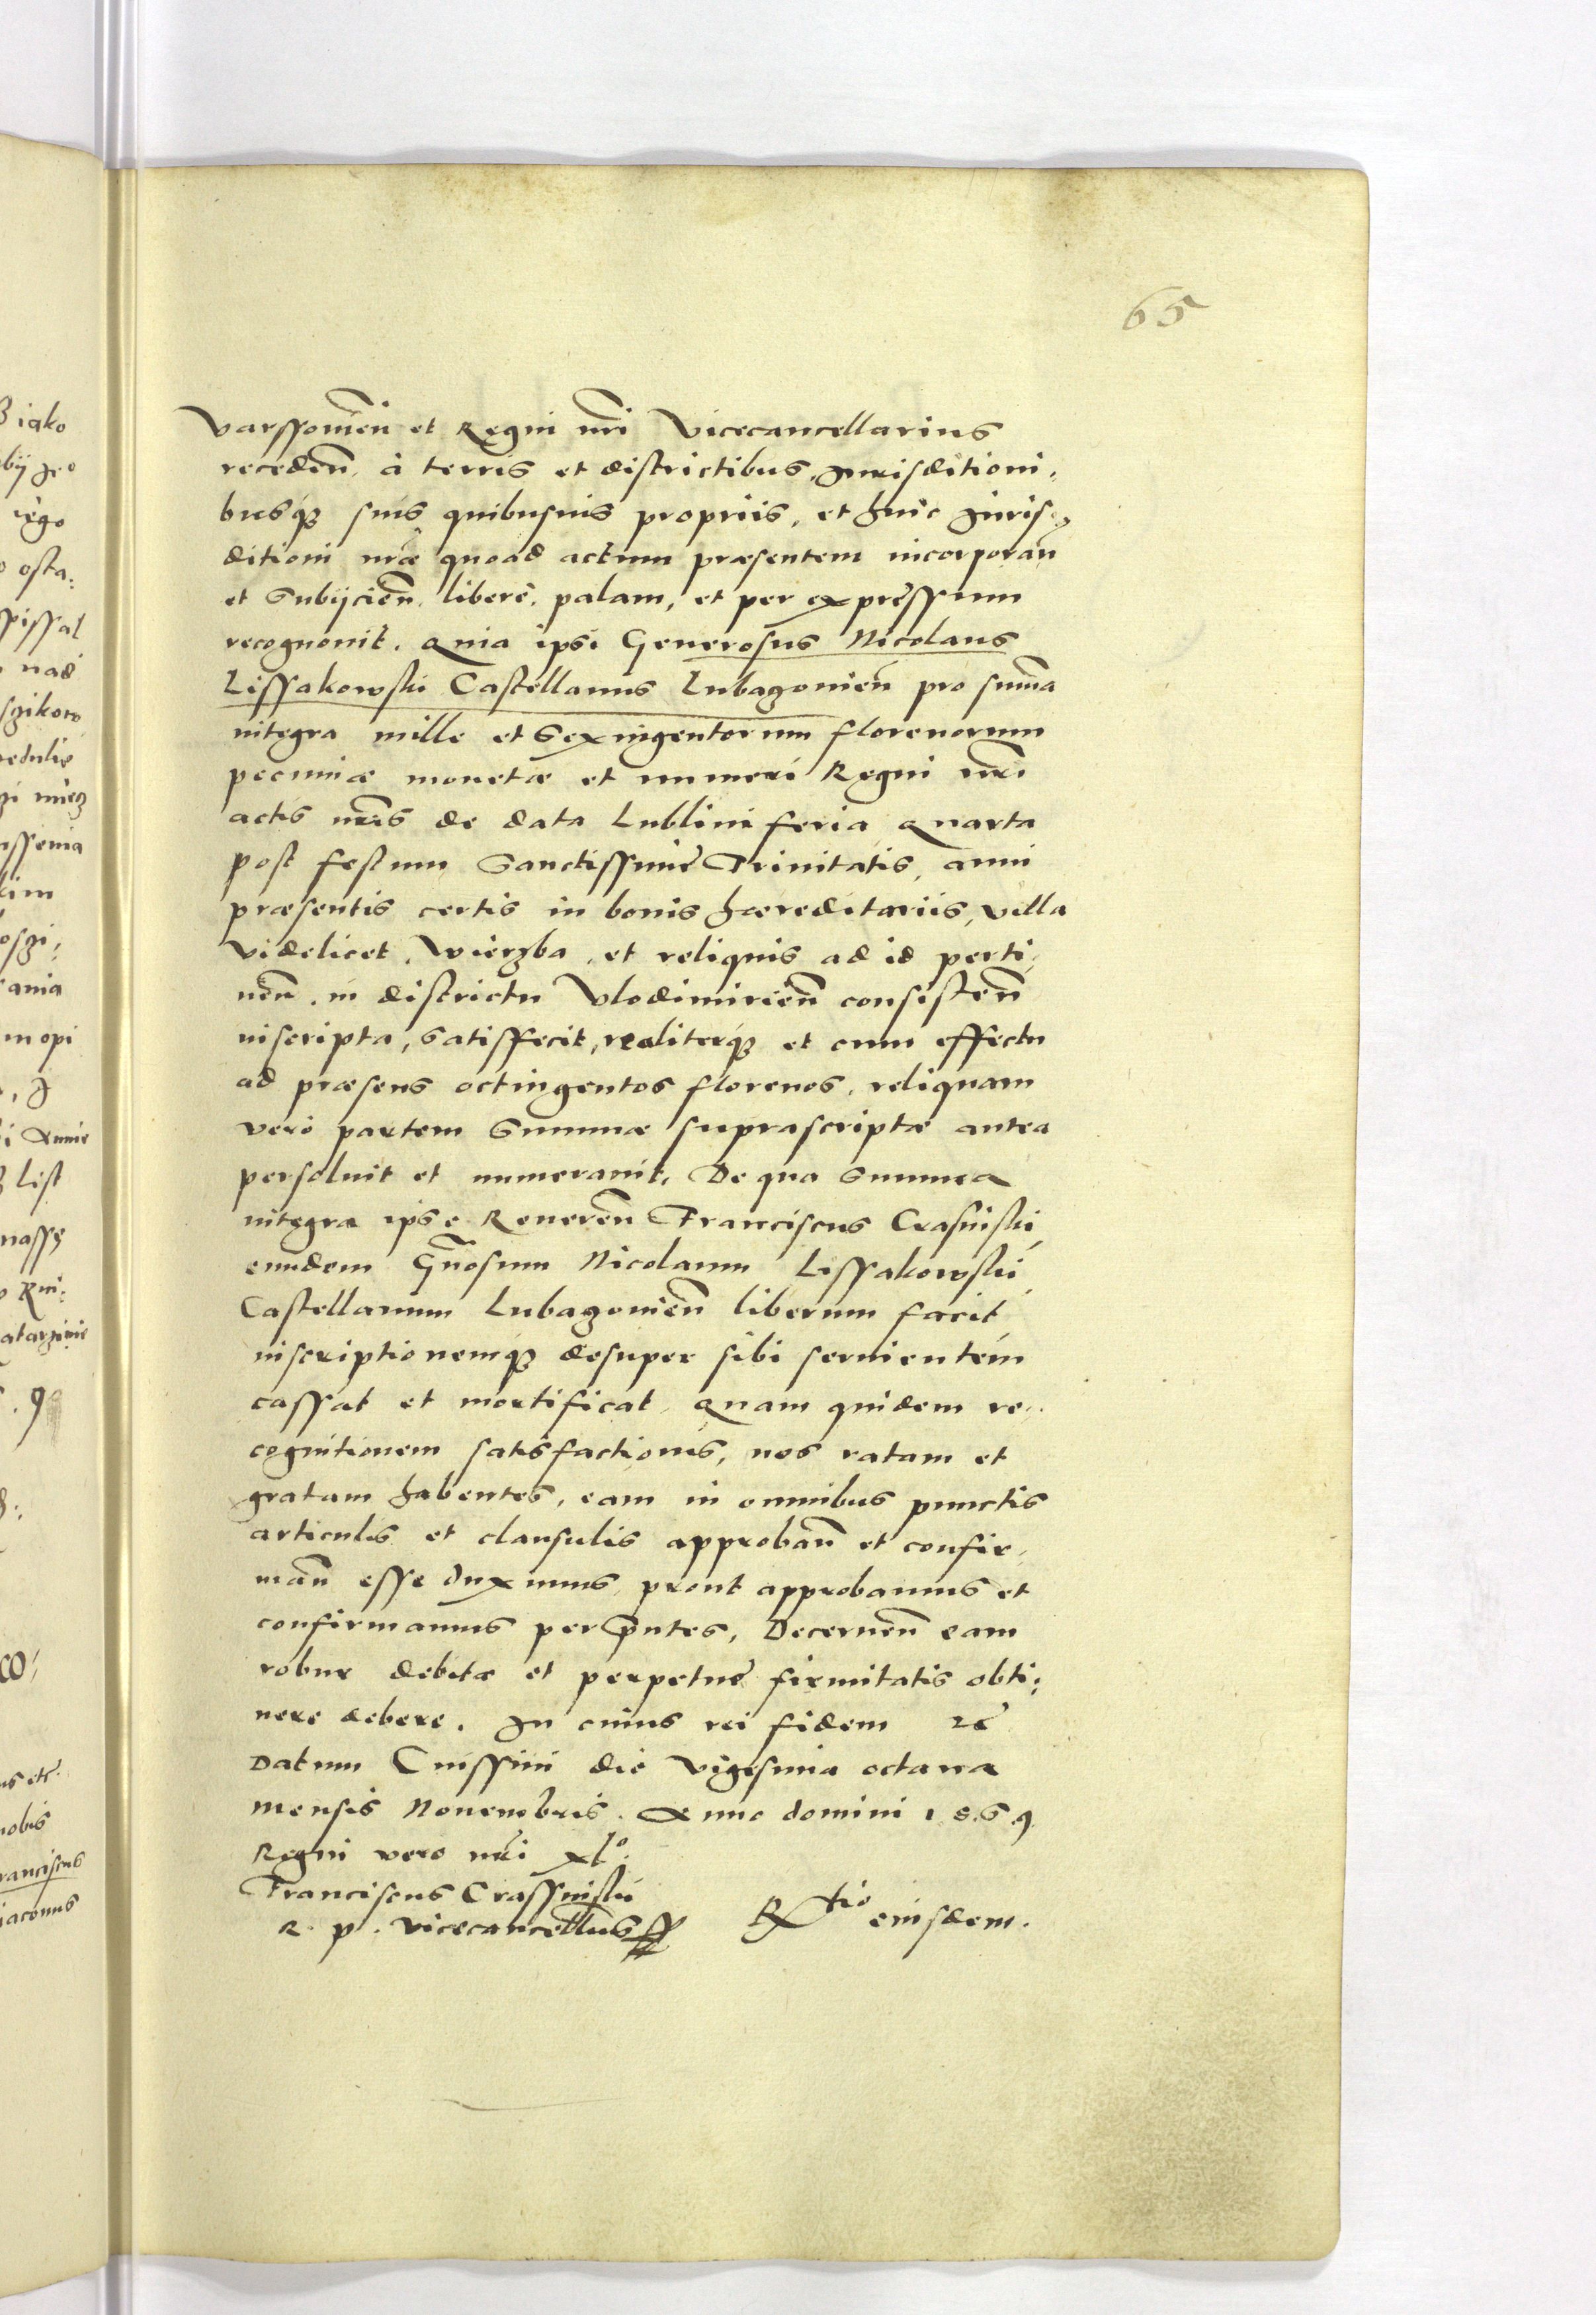 65
Varssouien̄ et Regni nr̄i Vicecancellarius
receden̄ à terris et districtibus, Jurisditioni,
busq₃ suis quibusuis propriis, et huic Juris,
ditioni nr̄ae quoad actum praesentem incorporan̄
et Subijcien̄. liberè, palam, et per expressum
recognouit. Quia ipsi Generosus Nicolaus
Lissakowski Castellanus Lubagonien̄ pro sum̄a
integra mille et Sexingentorum florenorum
pecuniae monetae et numeri Regni nr̄i
actis nr̄is de data Lublini feria Quarta
post festum Sanctissimę Trinitatis, anni
praesentis certis in bonis haereditariis, villa
videlicet, Wierzba, et reliquis ad id perti,
nen̄. in districtu Vlodimirien̄ consisten̄
inscripta, Satisffecit, realiterq₃ et cum effectu
ad praesens octingentos florenos, reliquam
vero partem Summae suprascriptae antea
persoluit et numerauit, De qua Summa
integra ipse Reueren̄ Franciscus Crasinski
eundem Gn̄osum Nicolaum Lissakowski
Castellanum Lubagonien̄ liberum facit
inscriptionemq₃ desuper sibi seruientem
cassat et mortificat. Quam quidem re,
cognitionem satisfactionis, nos ratam et
gratam habentes, eam in omnibus punctis
articulis et clausulis approban̄ et confir,
man̄ esse duximus, prout approbamus et
confirmamus per pn̄tes, Decernen̄ eam
robur debitae et perpetuę firmitatis obti,
nere debere. In cuius rei fidem etc̄
Datum Cnissini die Vigesima octaua
mensis Nouembris. Anno domini 1569
Regni vero nr̄i xl°.
Franciscus Crassinski
R. p. vicecancellus
Rtio eiusdem.